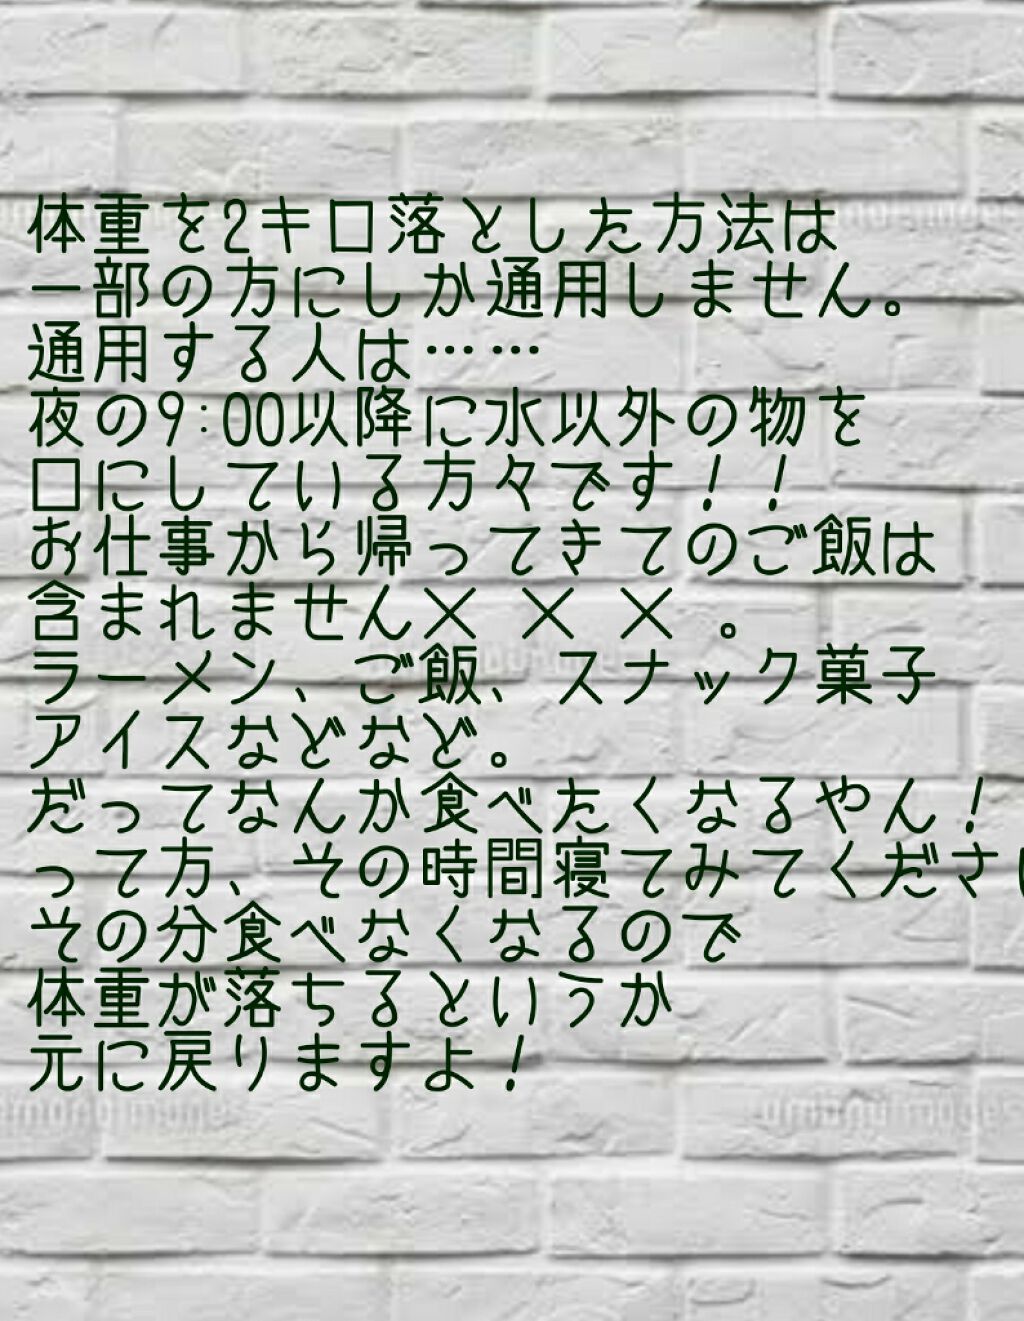 体重を2キロ落とした方法は
一部の方にしか通用しません。
通用する人は……
夜の9:00以降に水以外の物を
口にしている方々です！！
お仕事から帰ってきてのご飯は
含まれません× × × 。
ラーメン、ご飯、スナック菓子
アイスなどなど。
だってなんか食べたくなるやん！
って方、その時間寝てみてくださ
その分食べなくなるので
体重が落ちるというか
元に戻りますよ！